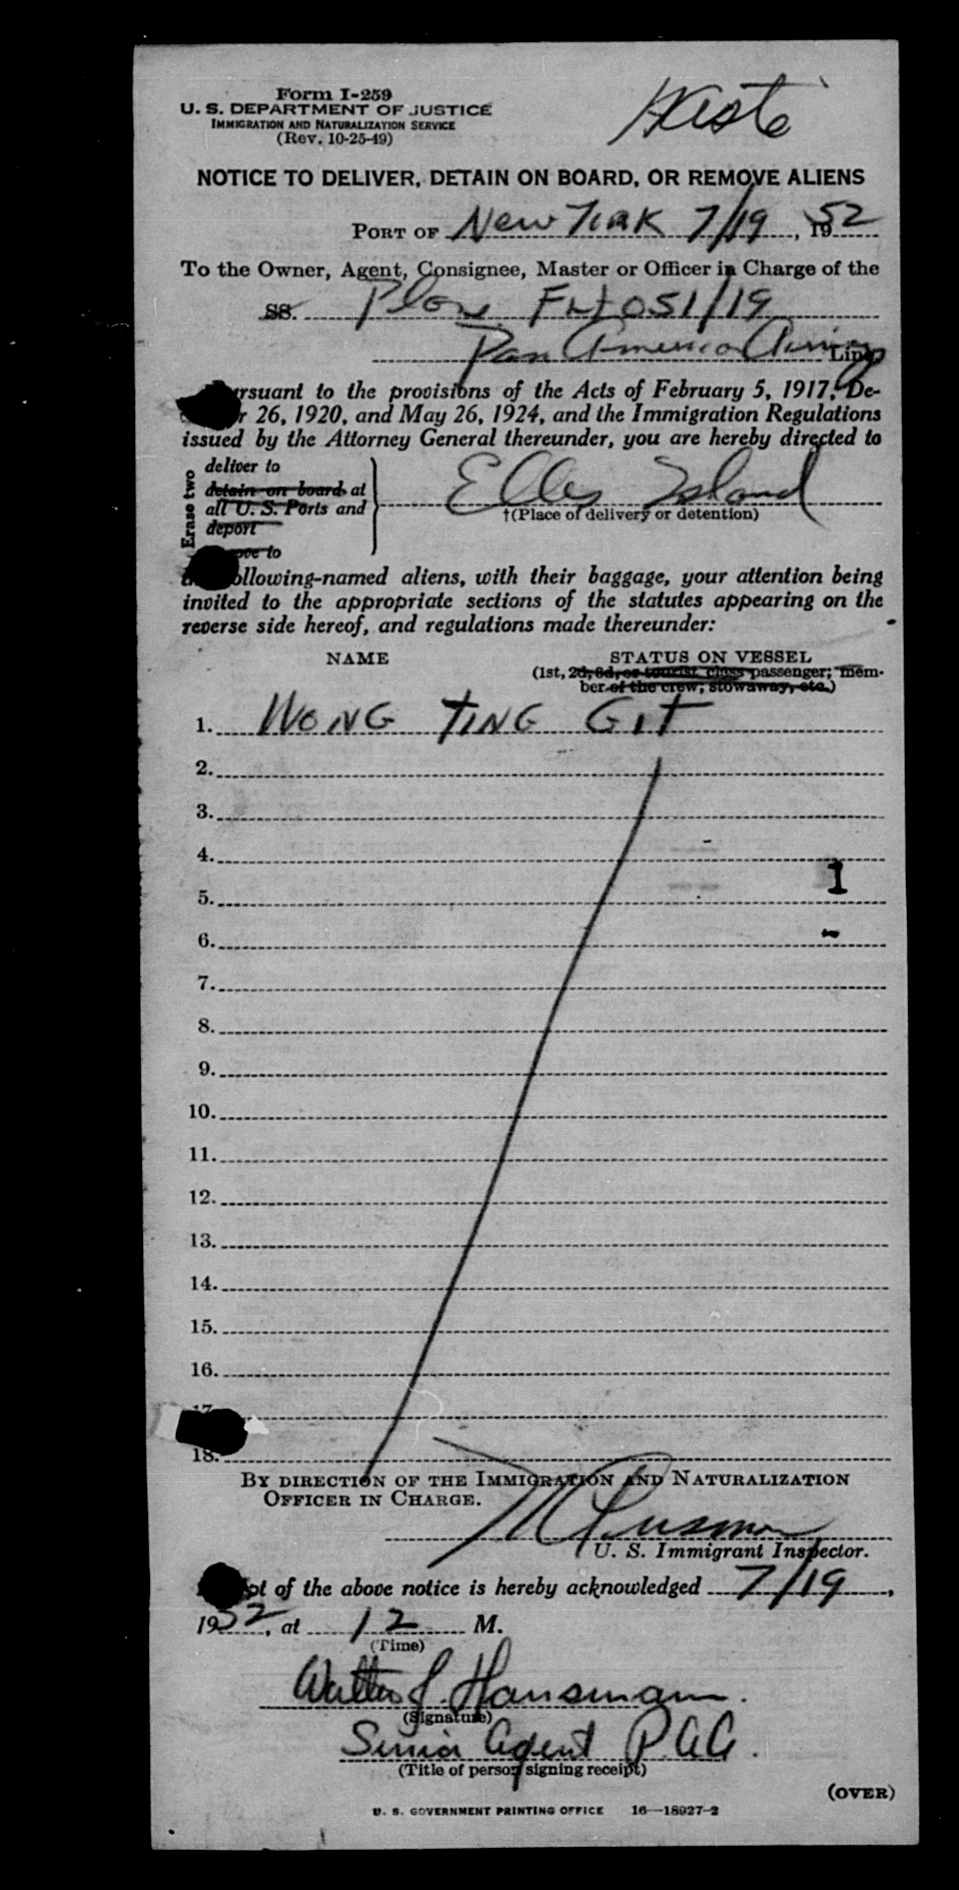 Form I-259
U. S. DEPARTMENT OF JUSTICE
IMMIGRATION AND NATURALIZATION SERVICE
(Rev. 10-25-49)
NOTICE TO DELIVER, DETAIN ON BOARD, OR REMOVE ALIENS
PORT OF New York 7/19, 1952
To the Owner, Agent, Consignee, Master or Officer in Charge of the
SS. Plane Flt 051/19
Pan American Line
rsuant to the provisions of the Acts of February 5, 1917, De-
r 26, 1920, and May 26, 1924, and the Immigration Regulations
issued by the Attorney General thereunder, you are hereby directed to
Erase two
deliver to
detain on board at
all U. S. Ports and
deport
ove to
Ellis Island
†(Place of delivery or detention)
ollowing-named aliens, with their baggage, your attention being
invited to the appropriate sections of the statutes appearing on the
reverse side hereof, and regulations made thereunder:
NAME STATUS ON VESSEL
(1st, 2d, 3d, or tourist class passenger; mem-
ber of the crew, stowaway, etc.)
1. WONG TING GIT
2.
3.
4.
1
5.
6.
7.
8.
9.
10.
11.
12.
13.
14.
15.
16.
17.
18.
BY DIRECTION OF THE IMMIGRATION AND NATURALIZATION
OFFICER IN CHARGE.
U. S. Immigrant Inspector.
pt of the above notice is hereby acknowledged 7/19,
1952, at 12 M.
(Time)
Walter J. Hansmann.
(Signature)
Senior Agent P.A.A.
(Title of person signing receipt)
(OVER)
U. S. GOVERNMENT PRINTING OFFICE 16—18927-2